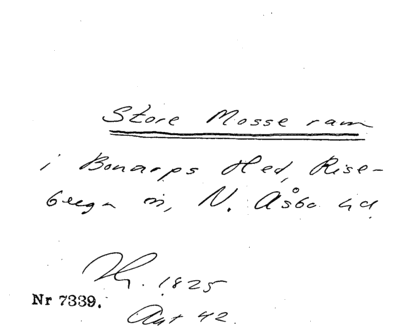 Store Mosse ram
i Bonarps Hed, Rise-
berga sn, N. Åsbo hd.
1825
Nr 7339.
Ant 42.